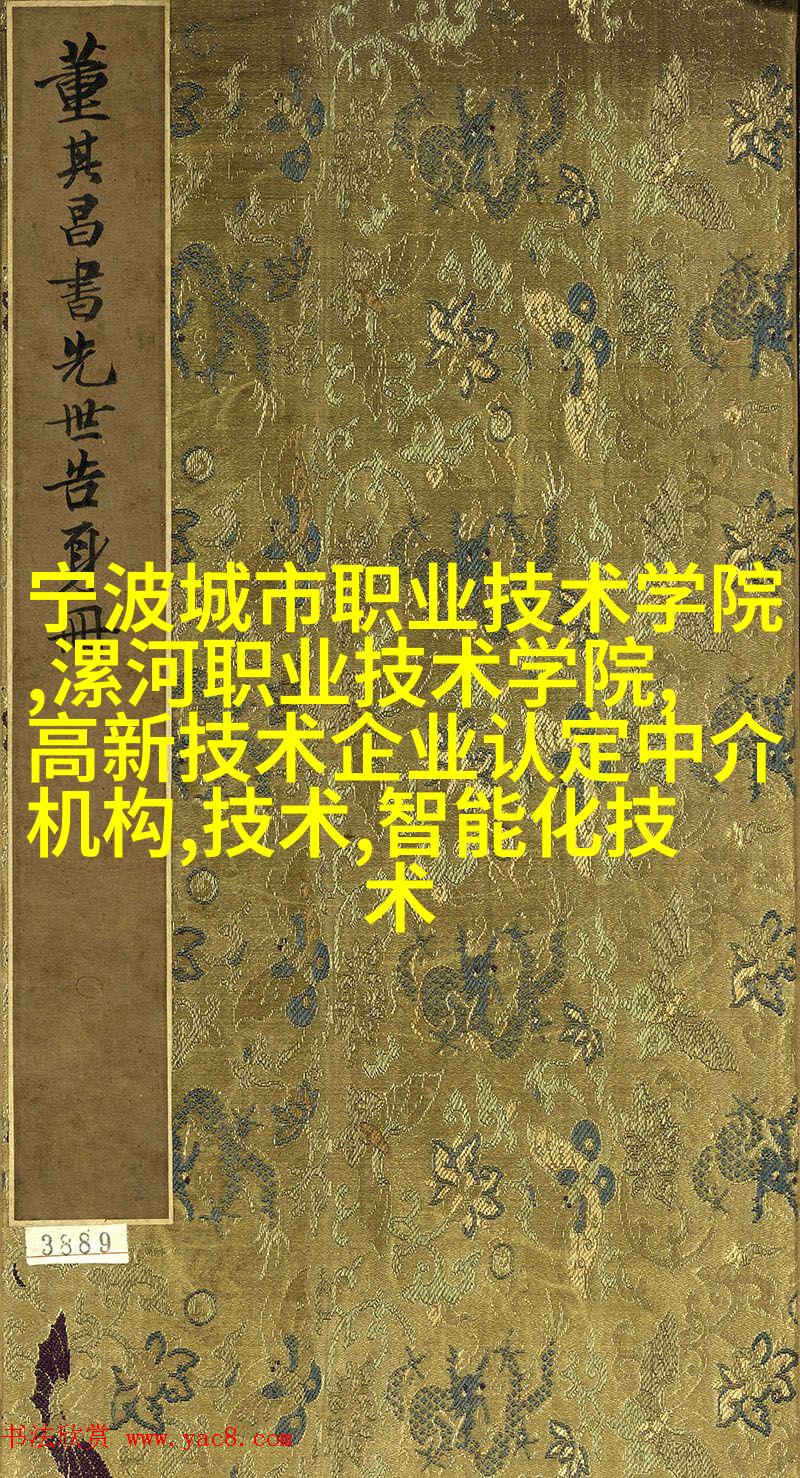 董其昌書先世告身冊
宁波城市职业技术学院
,漯河职业技术学院,
高新技术企业认定中介
机构,技术,智能化技
术
3889
书法欣赏 www.yac8.com